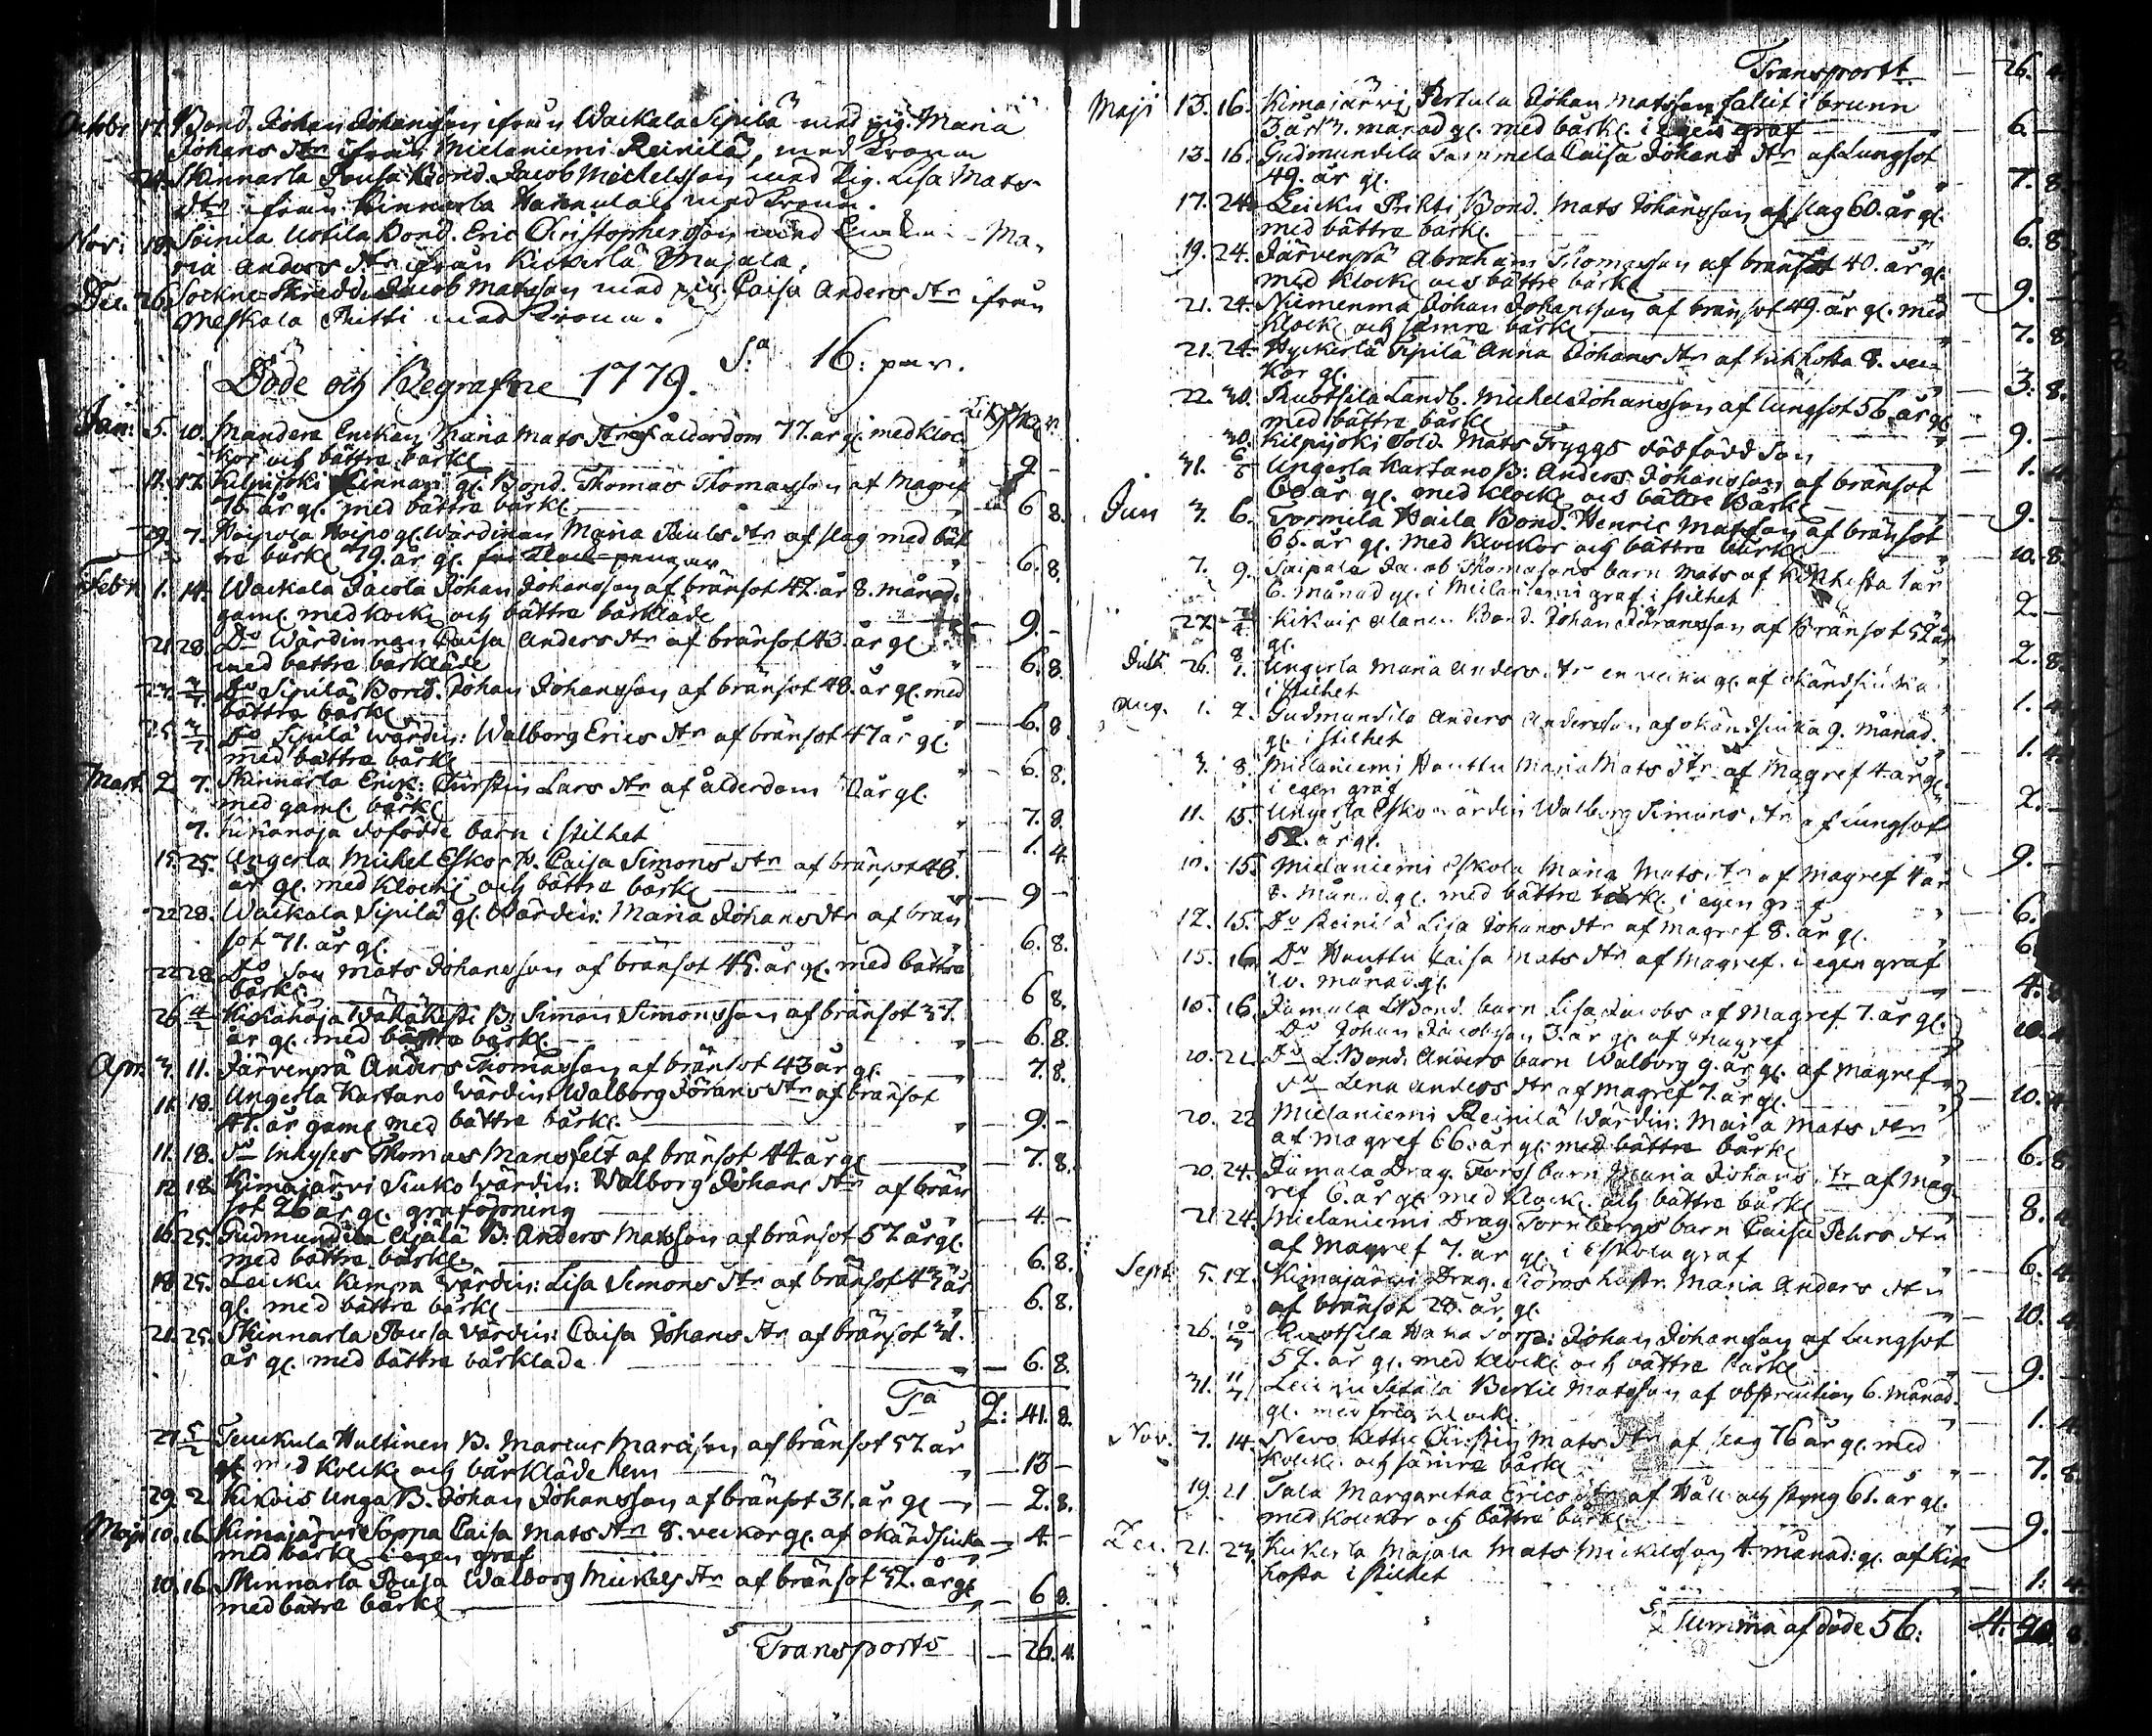 Octobr 17. Bond. Johan Johansson ifrån Wackala Sipilä med pig. Maria
Johans dtr ifrån Mielaniemi Reinilä, med Krona
24. Skinnarla Pousa Bond. Jacob Michelsson med Pig. Lisa Mats
dtr ifrån Kinnarla med Krona.
Nov: 19. Soinila Uotila Bond. Eric Christophersson med Ma-
ria Anders dtr ifrån Majala.
Dec. 26. Sockne Skredd. Jacob Matsson med pig. Caisa Anders dtr ifrån
Meskala Pritti med Krona.
Sa 16: par.
Döde och Begrafne 1779.
Jan: 5. 10. Mandera Enckan Maria Mats dtr af ålderdom 77. år gl. med kloc
kor och bättre bårkl. 9 -
11. 17. Kilpijoki gl. Bond. Thomas Thomasson af Magref
76. år gl. med bättre bårkl. 6 8.
29. 7. Haipola Haipo gl. Wärdinnan Maria Pauls dtr af slag med bät
tre bårkl 79. år gl. 6. 8.
Febr. 1. 14. Wackala Jacola Johan Johansson af bränsot 42. år 8. månad.
gaml. med klock och bättre bårkläde 9. -
21. 28. Do Wärdinnan Caisa Anders dtr af bränsot 43. år gl.
med bättre bårkläde 6. 8.
Do Sipilä Bond. Johan Johansson af bränsot 48. år gl. med
bättre bårkl 6. 8.
25. Do Sipilä Wärdin: Walborg Erics dtr af bränsot 47 år gl.
med bättre bårkl 6. 8.
Mart. 2. 7. Skinnarla Enck: Kirstin Lars dtr af ålderdom år gl.
med gaml. bårkl 7. 8.
7. dofödde barn i stilhet 1. 4.
15. 25. Ungerla Michel Eskos H. Caisa Simons dtr af bränsot 40.
år gl. med klock och bättre bårkl 9 -
22 28. Wackala Sipilä gl. Wärdin: Maria Johans dtr af brän
sot 71. år gl. 6. 8.
22 28. Do Son Mats Johansson af bränsot 45. år gl. med bättre
bårkl. 6 8.
26 4/2 B: Simon Simonsson af bränsot 37.
år gl. med bättre bårkl. 6. 8.
Apr. 3. 11. Järvenpä Anders Thomasson af bränsot 43 år gl. 7. 8.
11. 18. Ungerla Kartano Wärdin: Walborg Jörans dtr af bränsot
47. år gaml med bättre bårkl. 9. -
11. 18. Do Inhyses Thomas Mansfelt af bränsot 44. år gl 7. 8.
12 18. Kimajärvi Seuko Wärdin: Walborg Johans dtr af brän
sot 26 år gl. graföpning 4. -
16. 25. Gudmundila Äjälä B: Anders Matsson af bränsot 57. år gl.
med bättre bårkl 6. 8.
18 25. Leicku Kempa Wärdin: Lisa Simons dtr af bränsot 43 år
gl. med bättre bårkl 6. 8.
21. 25. Skinnarla Pousa Wärdin: Caisa Johans dtr af bränsot 31.
år gl. med bättre bårkläde 6. 8.
Sa 2: 41. 8.
27 5/2 Teuckula Hultinen B. Marcus Marcisson af bränsot 57. år
gl med klock och bårkläde hem 13 -
29. 2. Kikois Unga B. Johan Johansson af bränsot 31. år gl 2. 8.
Maji 10. 16. Kimajärvi Soppa Caisa Mats dtr 8. veckor gl. af okänd siuka 4 -
med bårkl i egen graf
10. 16. Skinnarla Pousa Walborg Michels dtr af bränsot 32. år gl
med bätre bårkl 6 8.
Transporto 26. 4.
Transport 26. 4.
Maji 13. 16. Kimajärvi Pertula Johan Matsson fallit i brunn
3 år 3. månad gl. med bårkl. i egen graf 6. -
13. 16. Gudmundila Tammela Caisa Johans dtr af Lungsot
49. år gl. 7. 8.
17. 24. Leicku Prikti Bond. Mats Johansson af slag 60. år gl.
med bättre bårkl. 6. 8.
19. 24. Järvenpä Abraham Thomasson af bränsot 40. år gl.
med klock och bättre bårkl 9. -
21. 24. Niemenmä Johan Johansson af bränsot 49. år gl. med
klock och sämre bårkl 7. 8.
21. 24. Sipilä Anna Johans dtr af kikhosta 8. vec
kor gl. 3. 8.
22. 30. Ruotsila Landb. Michel Johansson af lungsot 56. år gl
med bättre bårkl 9. -
30. Kilpijoki Sold. Mats Tryggs dödfödd son 1. 4.
31. 6/6 Ungerla Kartano B: Anders Johansson af bränsot
60 år gl. med klock och bättre Bårkl 9. -
Jun 3. 6. Tormila Haila Bond. Henric Matsson af bränsot
65. år gl. med klockor och bättre bårkl 10. 8.
7. 9. Saipala Jacob Thomassons barn Mats af Kikhosta 1 år
6. månad gl. i Mielaniemi graf i stilhet 2. -
27. Kikois Alanen Bond. Johan Jöransson af Bränsot 52 år
gl. 2. 8.
Julii 26. Ungerla Maria Anders dtr en vecka gl. af okänd siuka
i stilhet 1. 4.
Aug. 1. 2. Gudmundila Anders Andersson af okänd siuka 9. månad.
gl. i stilhet 1. 4.
3. 8. Mielaniemi Houttu Maria Mats dtr af Magref 4. år gl.
i egen graf 2. -
11. 15. Ungerla Esko Wärdin Walborg Simons dtr af Lungsot
52. år gl. 9. -
15. Mielaniemi Eskola Maria Mats dtr af Magref 4 år
8. Månad gl. med bättre bårkl. i egen graf 6.
12. 15. Do Reinilä Lisa Johans dtr af magref 8. år gl. 6.
15. 16. Do Houttu Caisa Mats dtr af Magref. i egen graf
10. månad gl. 4. 8.
16. Jamala L Bond. barn Lisa Jacobs af Magref 7. år gl.
Do Johan Jacobsson 3. år gl. af Magref 10. 4.
20. 22. Do L. Bond. Anders barn Walborg 9. år gl. af Magref
Do Lena Anders dtr af Magref 7. år gl. 10. 4.
20. 22 Mielaniemi Reinilä Wärdin: Maria Mats dtr
af magref 66. år gl. med bättre bårkl 6. 8
20. 24. Jamala Drag. Forss barn Maria Johans dtr af Mag-
ref 6. år gl. med klock. och bättre bårkl 8. 4.
21 24. Mielaniemi Drag. Tornbergs barn Caisa Pehrs dtr
af Magref 7. år gl. i Eskola graf 6. 4.
Sept. 5. 12. Kimajärvi Drag. hustr. Maria Anders dtr
af bränsot 28. år gl. 10. 4.
26. 10/3 Ruotsila Johan Johansson af Lungsot
57. år gl. med klock och bättre bårkl 9. -
31. Setälä Bertil Matsson af obstruction 6. månad.
gl. med klock. 1. 4.
Nov. 7. 14. Nevo Kettu Kirstin Mats dtr af slag 76 år gl. med
klock. och sämre bårkl 7. 8.
19. 21 Tala Margaretha Erics dtr af Håll och styng 61. år gl.
med klockor och bättre bårkl. 9. -
Dec. 21. 23. Majala Mats Mickelsson 4. månad: gl. af kik
hosta i stilhet 1: 4.
Summa af döde 56: 4. 8.